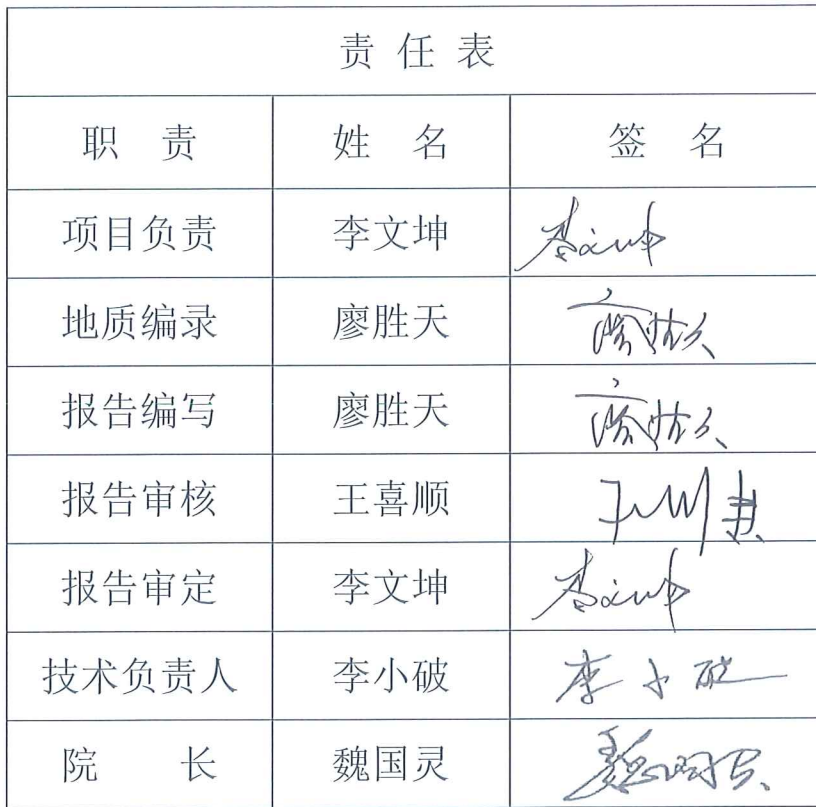 责任表
职 责 姓 名 签 名
项目负责 李文坤 李文坤
地质编录 廖胜天 廖胜天
报告编写 廖胜天 廖胜天
报告审核 王喜顺
报告审定 李文坤 李文坤
技术负责人 李小破 李小破
院 长 魏国灵 魏国灵